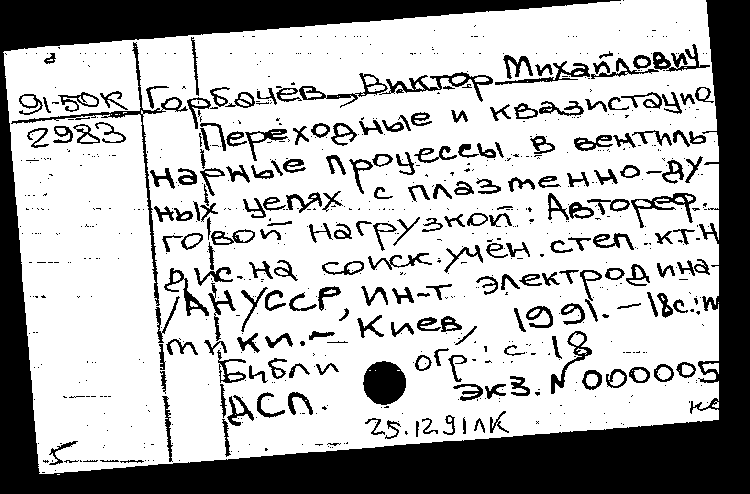 91-50К Горбачёв, Виктор Михайлович
2983 Переходные и квазистацио
нарные процессы в вентиль-
ных цепях с плазменно-ду-
говой нагрузкой: Автореф.
дис. на соиск. учён. степ. к.т.н
/АН УССР, Ин-т электродина-
мики.- Киев, 1991. - 18с.;
Библиогр.: с. 18
ДСП. Экз. N 000005
25.12.91
5